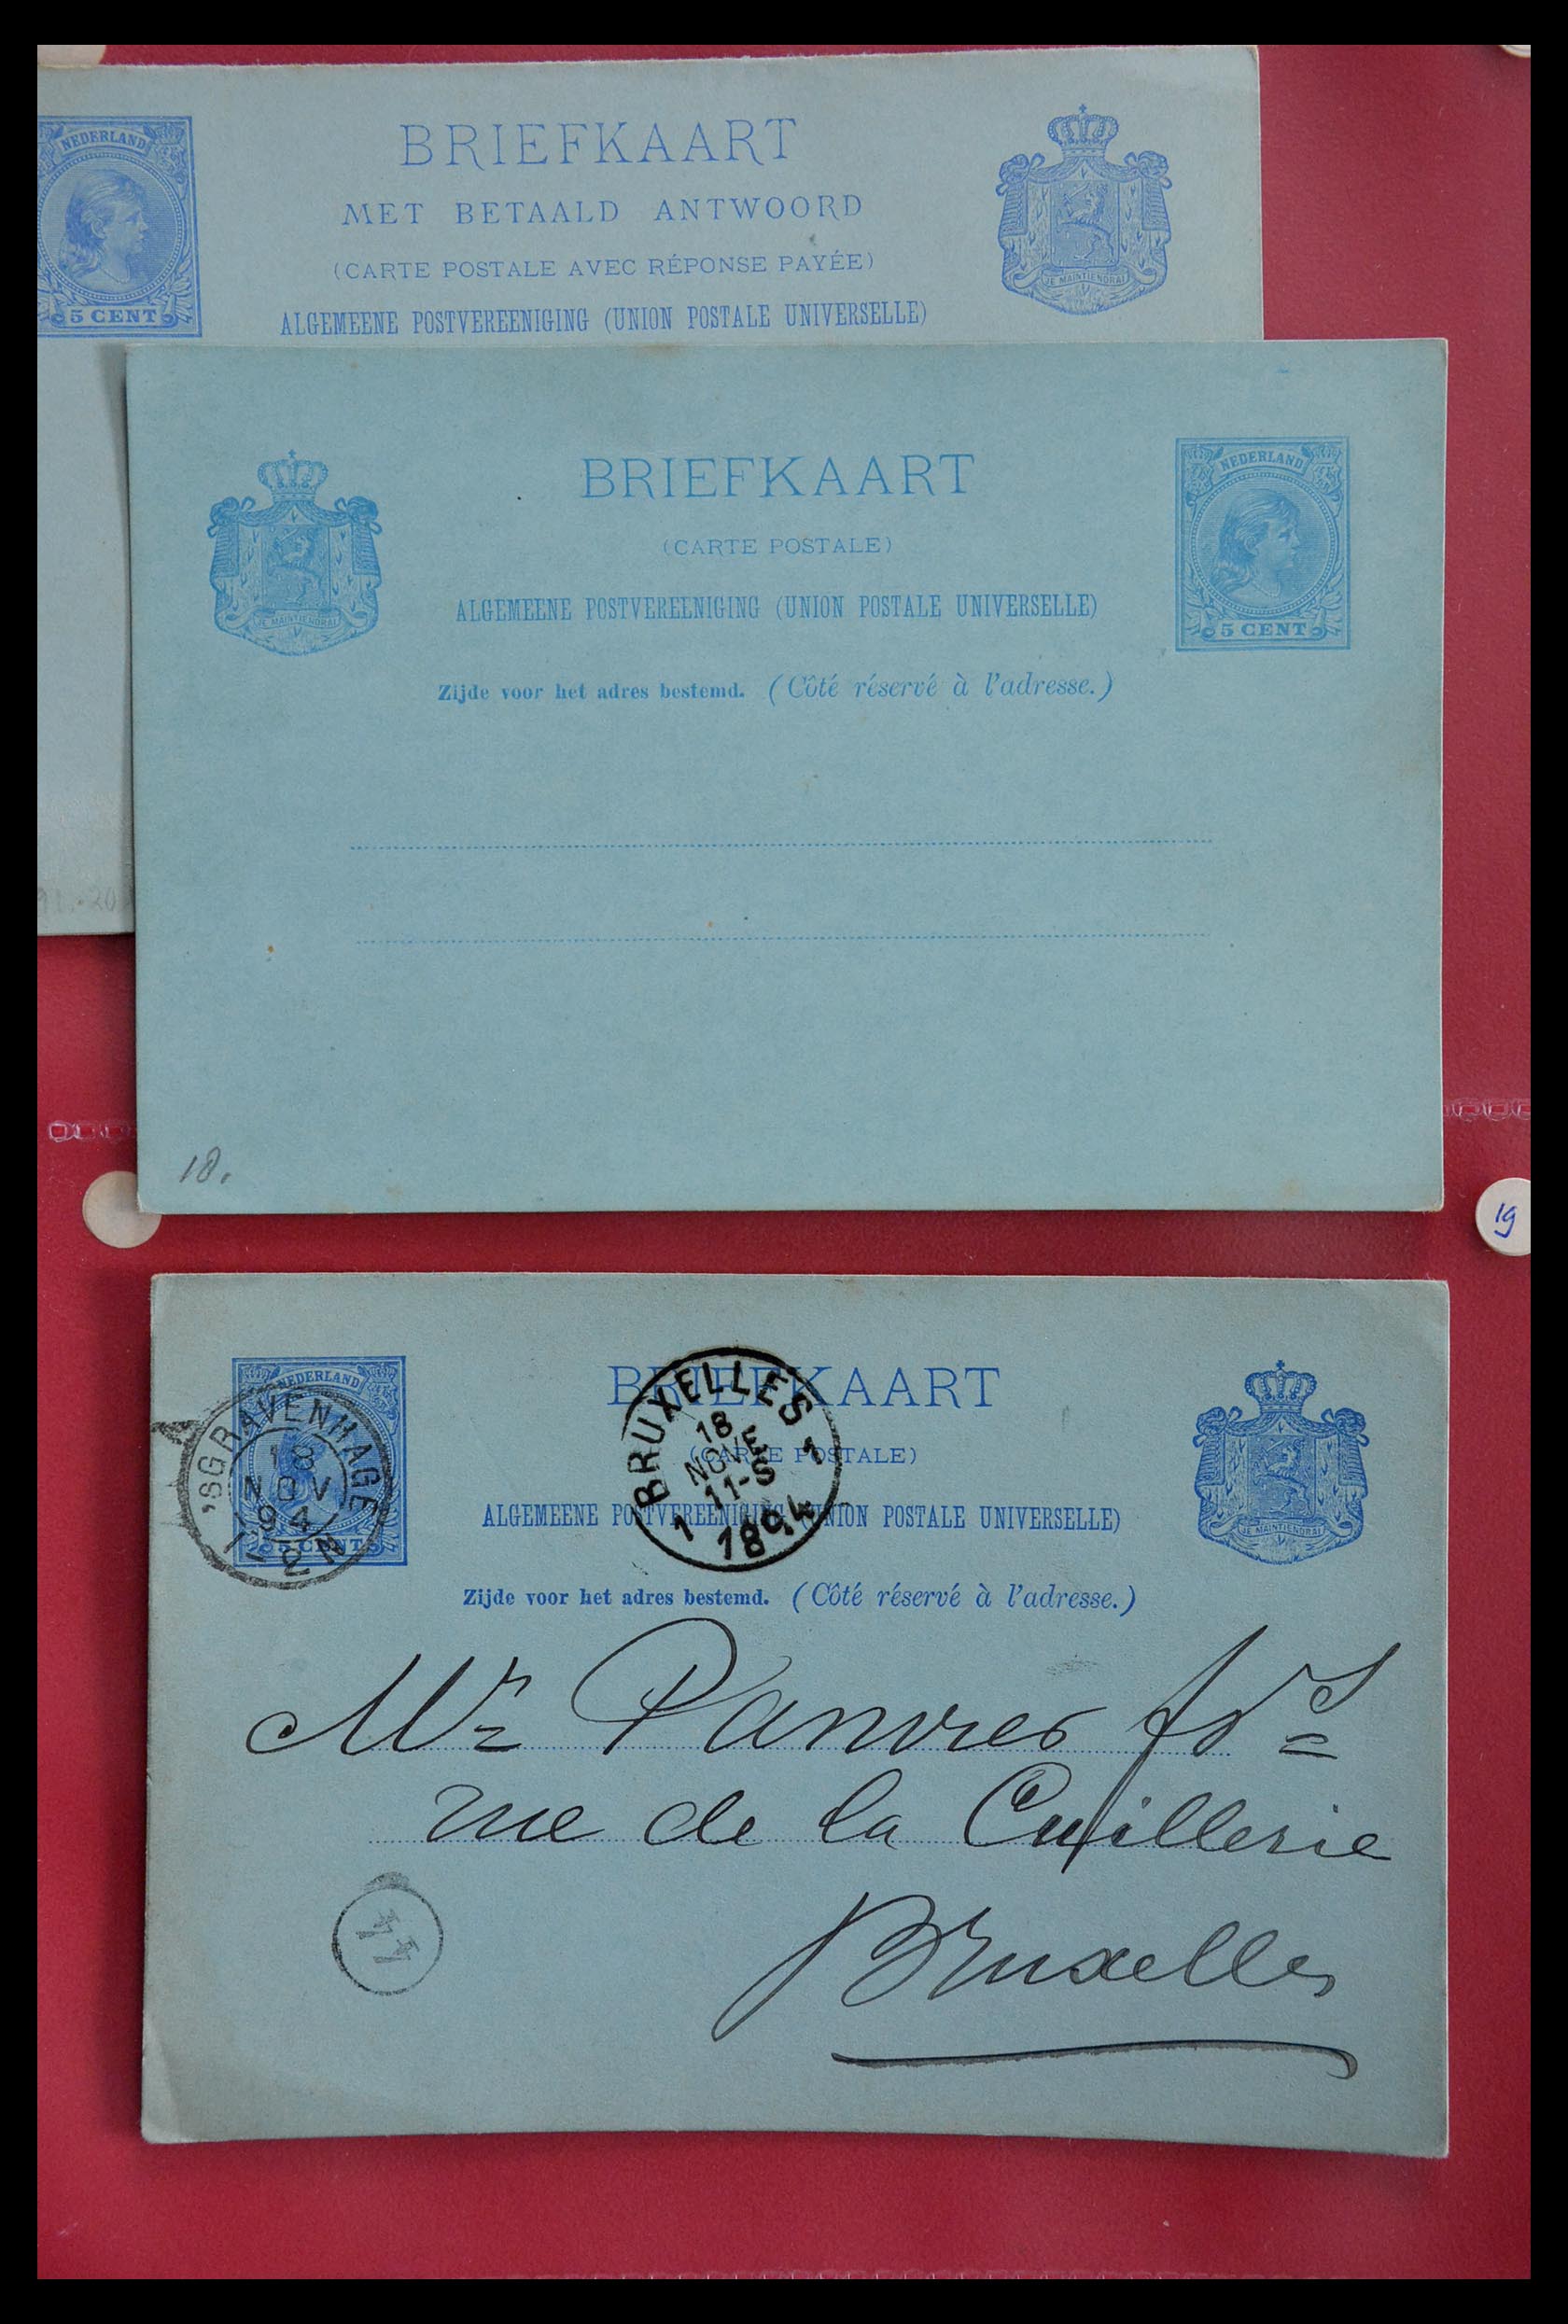 NEDERLAND
5 CENT
BRIEFKAART
MET BETAALD ANTWOORD
(CARTE POSTALE AVEC RÉPONSE PAYÉE)
ALGEMEENE POSTVEREENIGING (UNION POSTALE UNIVERSELLE)
JE MAINTIENDRAI
JE MAINTIENDRAI
BRIEFKAART
(CARTE POSTALE)
ALGEMEENE POSTVEREENIGING (UNION POSTALE UNIVERSELLE)
NEDERLAND
5 CENT
Zijde voor het adres bestemd. (Côté réservé à l'adresse.)
18.
19
NEDERLAND
5 CENT
'SGRAVENHAGE
18
NOV
94
BRIEFKAART
(CARTE POSTALE)
ALGEMEENE POSTVEREENIGING (UNION POSTALE UNIVERSELLE)
BRUXELLES
18
NOVE
11-S
1 1894 1
JE MAINTIENDRAI
Zijde voor het adres bestemd. (Côté réservé à l'adresse.)
Mr
rue de la Cuillerie
Bruxelles